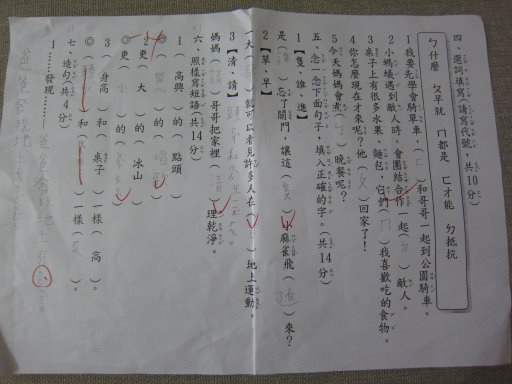 四、選詞填寫，請寫代號，共10分
ㄅ什麼 ㄆ早就 ㄇ都是 ㄈ才能 ㄉ抵抗
1我要先學會騎單車，（ㄈ）和哥哥一起到公園騎車。
2小螞蟻遇到敵人時，會團結合作一起（ㄉ）敵人。
3桌子上有很多水果、麵包，它們（ㄇ）我喜歡吃的食物。
4你怎麼現在才來呢？他（ㄆ）回家了！
5今天媽媽會煮（ㄅ）晚餐呢？
五、念一念下面句子，填入正確的字。（共14分）
1【隻、誰、進】
是（誰）忘了關門，讓這（隻）小麻雀飛（進）來？
2【草、早】
一大（早）就可以看見許多人在（草）地上運動。
3【清、請】
媽媽（請）哥哥把家裡（清）理乾淨。
六、照樣寫短語（共14分）
1（高興）的（點頭）
◎（）的（唱歌）
2更（大）的（冰山）
◎更（小）的（）
3（身高）和（桌子）一樣（高）。
◎（）和（）一樣（）。
七、造句（共4分）
1……發現……
爸爸發現